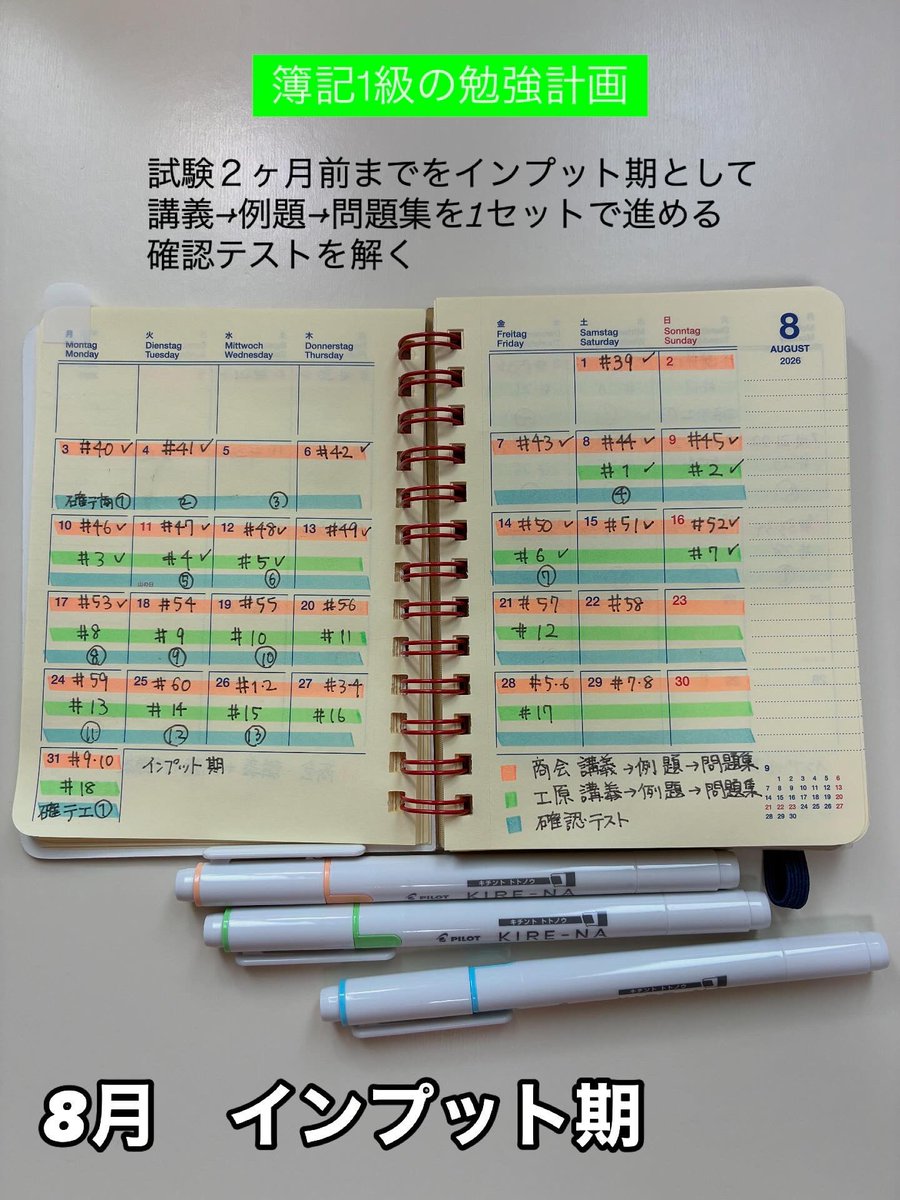 簿記1級の勉強計画
試験２ヶ月前までをインプット期として
講義→例題→問題集を1セットで進める
確認テストを解く
月 火 水 木
Montag Dienstag Mittwoch Donnerstag
Monday Tuesday Wednesday Thursday
金 土 日
Freitag Samstag Sonntag
Friday Saturday Sunday
8
AUGUST
2026
1 #39 ✓ 2
3 #40 ✓ 4 #41 ✓ 5 6 #42 ✓
① ② ③
7 #43 ✓ 8 #44 ✓ 9 #45 ✓
#1 ✓ #2 ✓
④
10 #46 ✓ 11 #47 ✓ 12 #48 ✓ 13 #49 ✓
#3 ✓ #4 ✓ #5 ✓
山の日 ⑤ ⑥
14 #50 ✓ 15 #51 ✓ 16 #52 ✓
#6 ✓ #7 ✓
⑦
17 #53 ✓ 18 #54 19 #55 20 #56
#8 #9 #10 #11
⑧ ⑨ ⑩
21 #57 22 #58 23
#12
24 #59 25 #60 26 #1・2 27 #3・4
#13 #14 #15 #16
⑪ ⑫ ⑬
28 #5・6 29 #7・8 30
#17
31 #9・10
#18
確テ工①
インプット期
商会 講義→例題→問題集
工原 講義→例題→問題集
確認テスト
9
1 2 3 4 5 6
7 8 9 10 11 12 13
14 15 16 17 18 19 20
21 22 23 24 25 26 27
28 29 30
キチント トトノウ
PILOT KIRE-NA
キチント トトノウ
PILOT KIRE-NA
キチント トトノウ
8月 インプット期